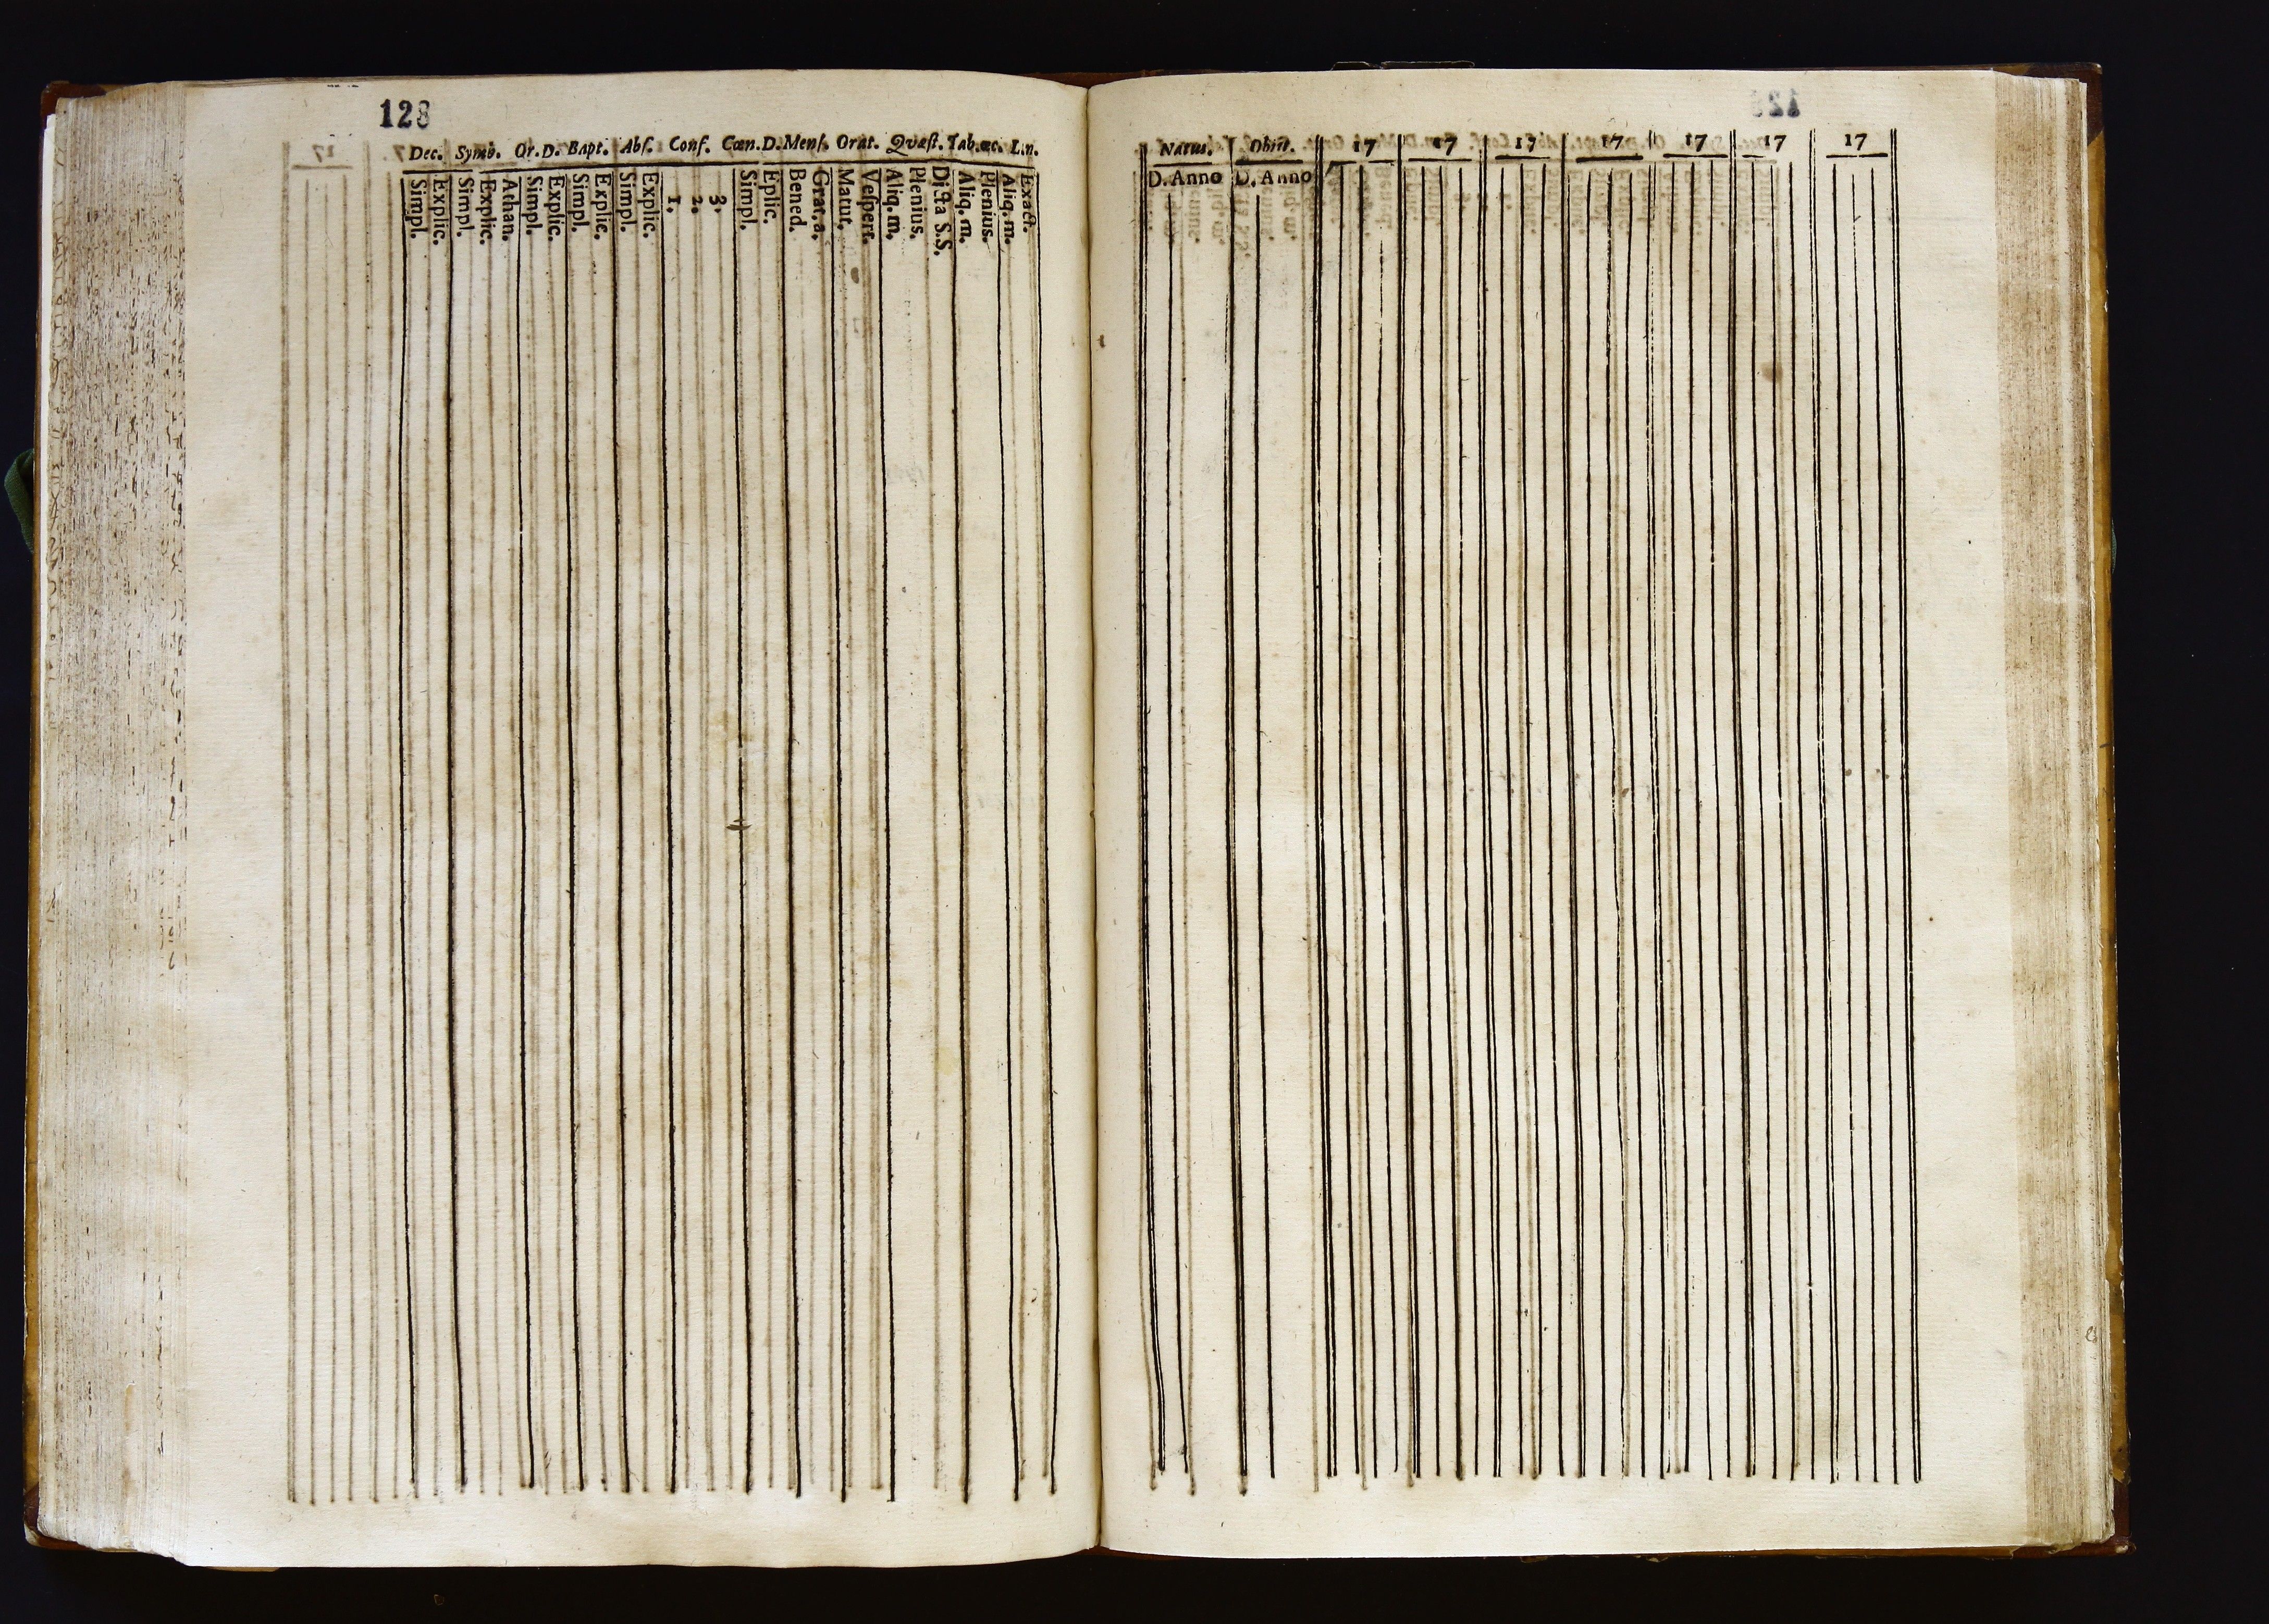 128
Dec. Symb. Or.D. Bapt. Abſ. Conf. Cœn.D. Menſ. Orat. Qvæſt. Tab.œc. Lin.
Simpl.
Explic.
Simpl.
Explic.
Athan.
Simpl.
Explic.
Simpl.
Explic.
Simpl.
Explic.
1.
2.
3.
Simpl.
Eplic.
Bened.
Grat. a.
Matut.
Veſpert.
Aliq. m.
Plenius.
Dicta S.S.
Aliq. m.
Plenius.
Aliq. m.
Exact.
Natus. Obiit. 17 17 17 17 17 17 17
D. Anno D. Anno